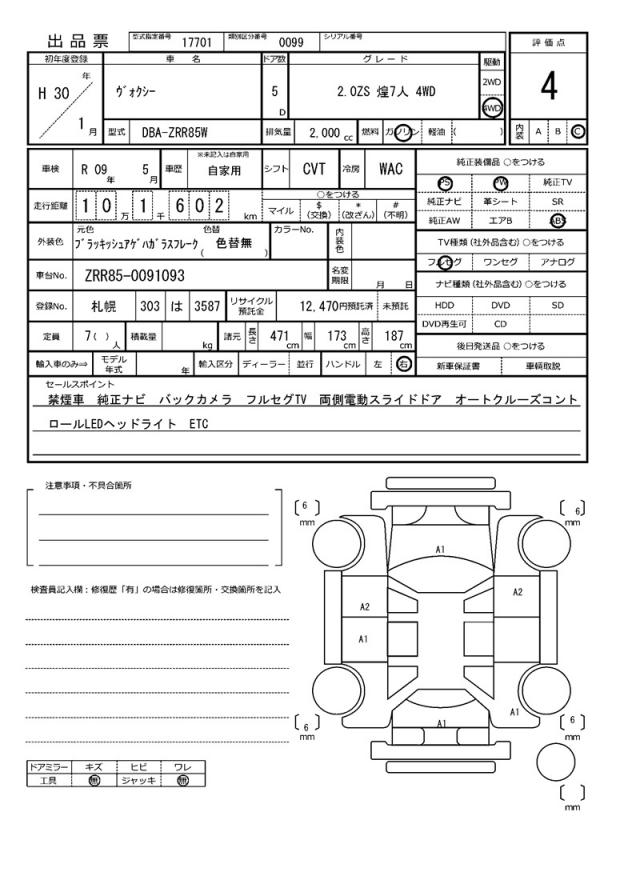 出品票
型式指定番号 17701 類別区分番号 0099 シリアル番号
初年度登録 車名 ドア数 グレード 駆動 評価点
H 30 年 1 月
ヴォクシー
5 D
2.0ZS 煌7人 4WD
2WD
4WD
4
型式 DBA-ZRR85W 排気量 2,000 cc 燃料 ガソリン 軽油 ( )
内装 A B C
車検 R 09 年 5 月 車歴 ※未記入は自家用 自家用 シフト CVT 冷房 WAC
純正装備品 ○をつける
PS PW 純正TV
純正ナビ 革シート SR
純正AW エアB ABS
走行距離 1 0 万 1 千 6 0 2 km
○をつける
マイル $ (交換) * (改ざん) # (不明)
TV種類 (社外品含む) ○をつける
フルセグ ワンセグ アナログ
外装色 元色 色替
ブラッキッシュアゲハガラスフレーク ( 色替無 )
カラーNo. 内装色
ナビ種類 (社外品含む) ○をつける
HDD DVD SD
DVD再生可 CD
車台No. ZRR85-0091093 名変期限 月 日
登録No. 札幌 303 は 3587 リサイクル預託金 12,470円預託済 未預託
定員 7( ) 人 積載量 kg 諸元 長さ 471 cm 幅 173 cm 高さ 187 cm
後日発送品 ○をつける
新車保証書 車輌取説
輸入車のみ⇒ モデル年式 年 輸入区分 ディーラー 並行 ハンドル 左 右
セールスポイント
禁煙車 純正ナビ バックカメラ フルセグTV 両側電動スライドドア オートクルーズコント
ロールLEDヘッドライト ETC
注意事項・不具合箇所
検査員記入欄：修復歴「有」の場合は修復箇所・交換箇所を記入
6 mm
6 mm
A1
A2
A2
A1
A1
A1
6 mm
6 mm
mm
ドアミラー キズ ヒビ ワレ
工具 無 ジャッキ 無